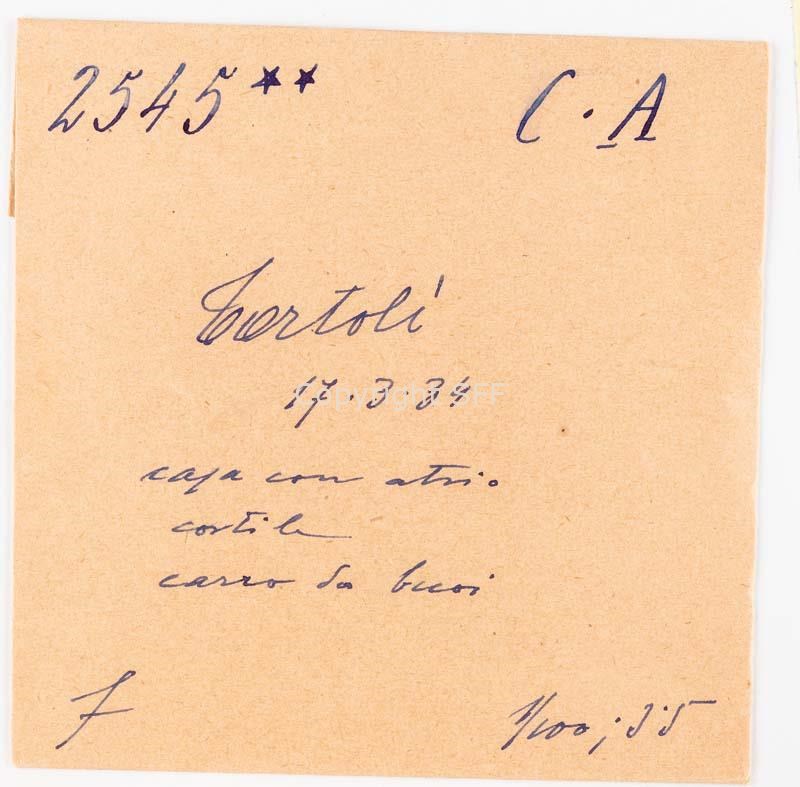 2545** C. A
Tortolì
17.3.34
casa con atrio
cortile
carro da buoi
1/100; 3.5